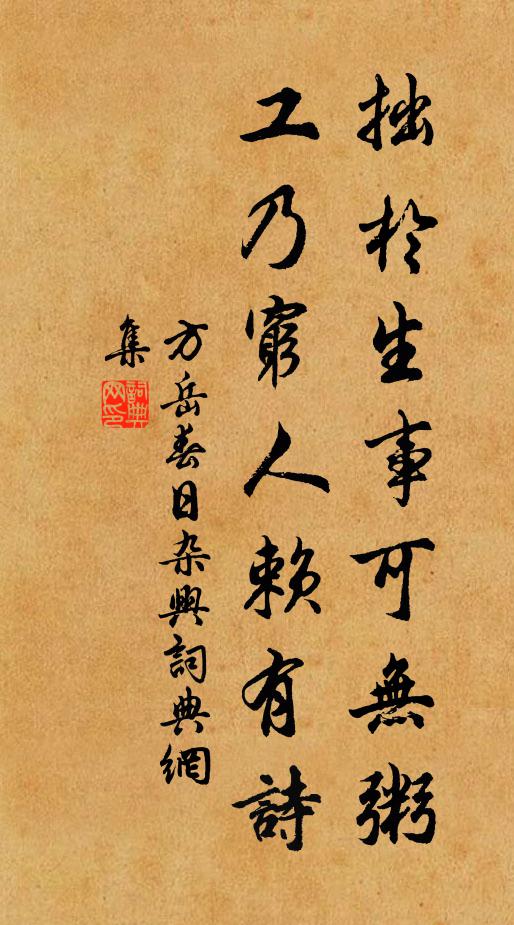 拙於生事可無粥
工乃窮人賴有詩
方岳春日杂興詞典網
集
詞典網印